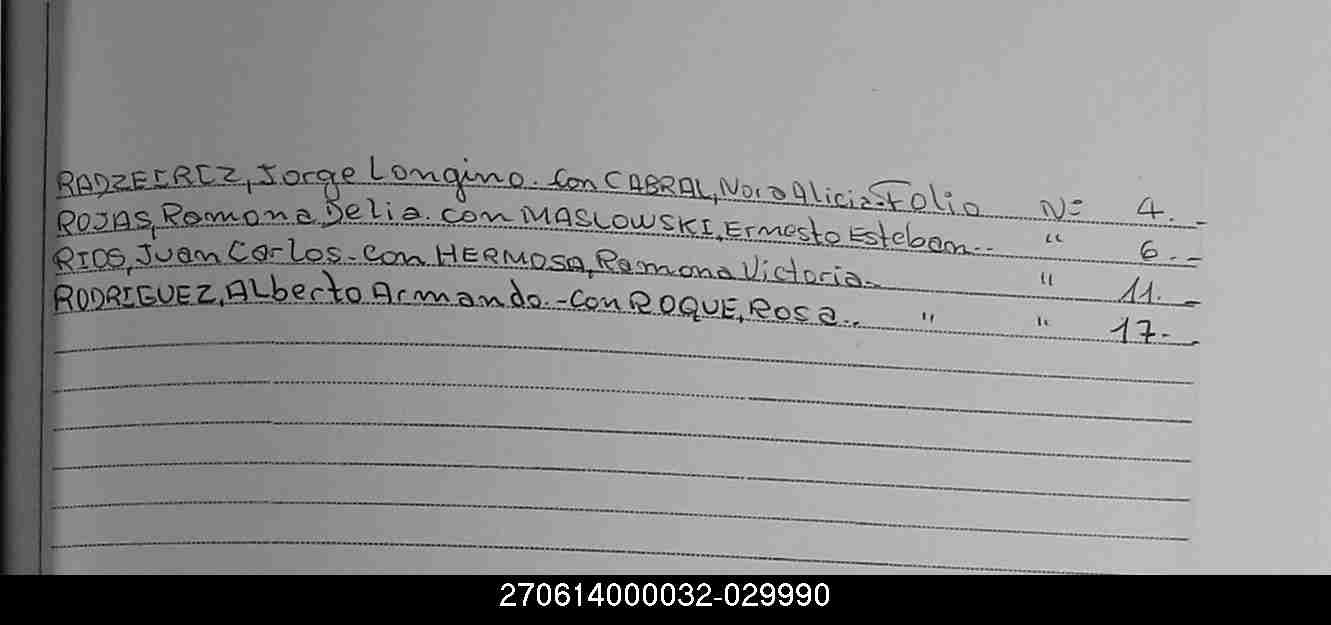 RADZECREZ, Jorge Longino. Con CABRAL, Nora Alicia.- Folio Nº 4.-
ROJAS, Ramona Delia. con MASLOWSKI, Ernesto Esteban.. " 6.--
RIOS, Juan Carlos.- Con HERMOSA, Ramona Victoria.- " 11.-
RODRIGUEZ, Alberto Armando.- Con ROQUE, Rosa.. " " 17.-
270614000032-029990